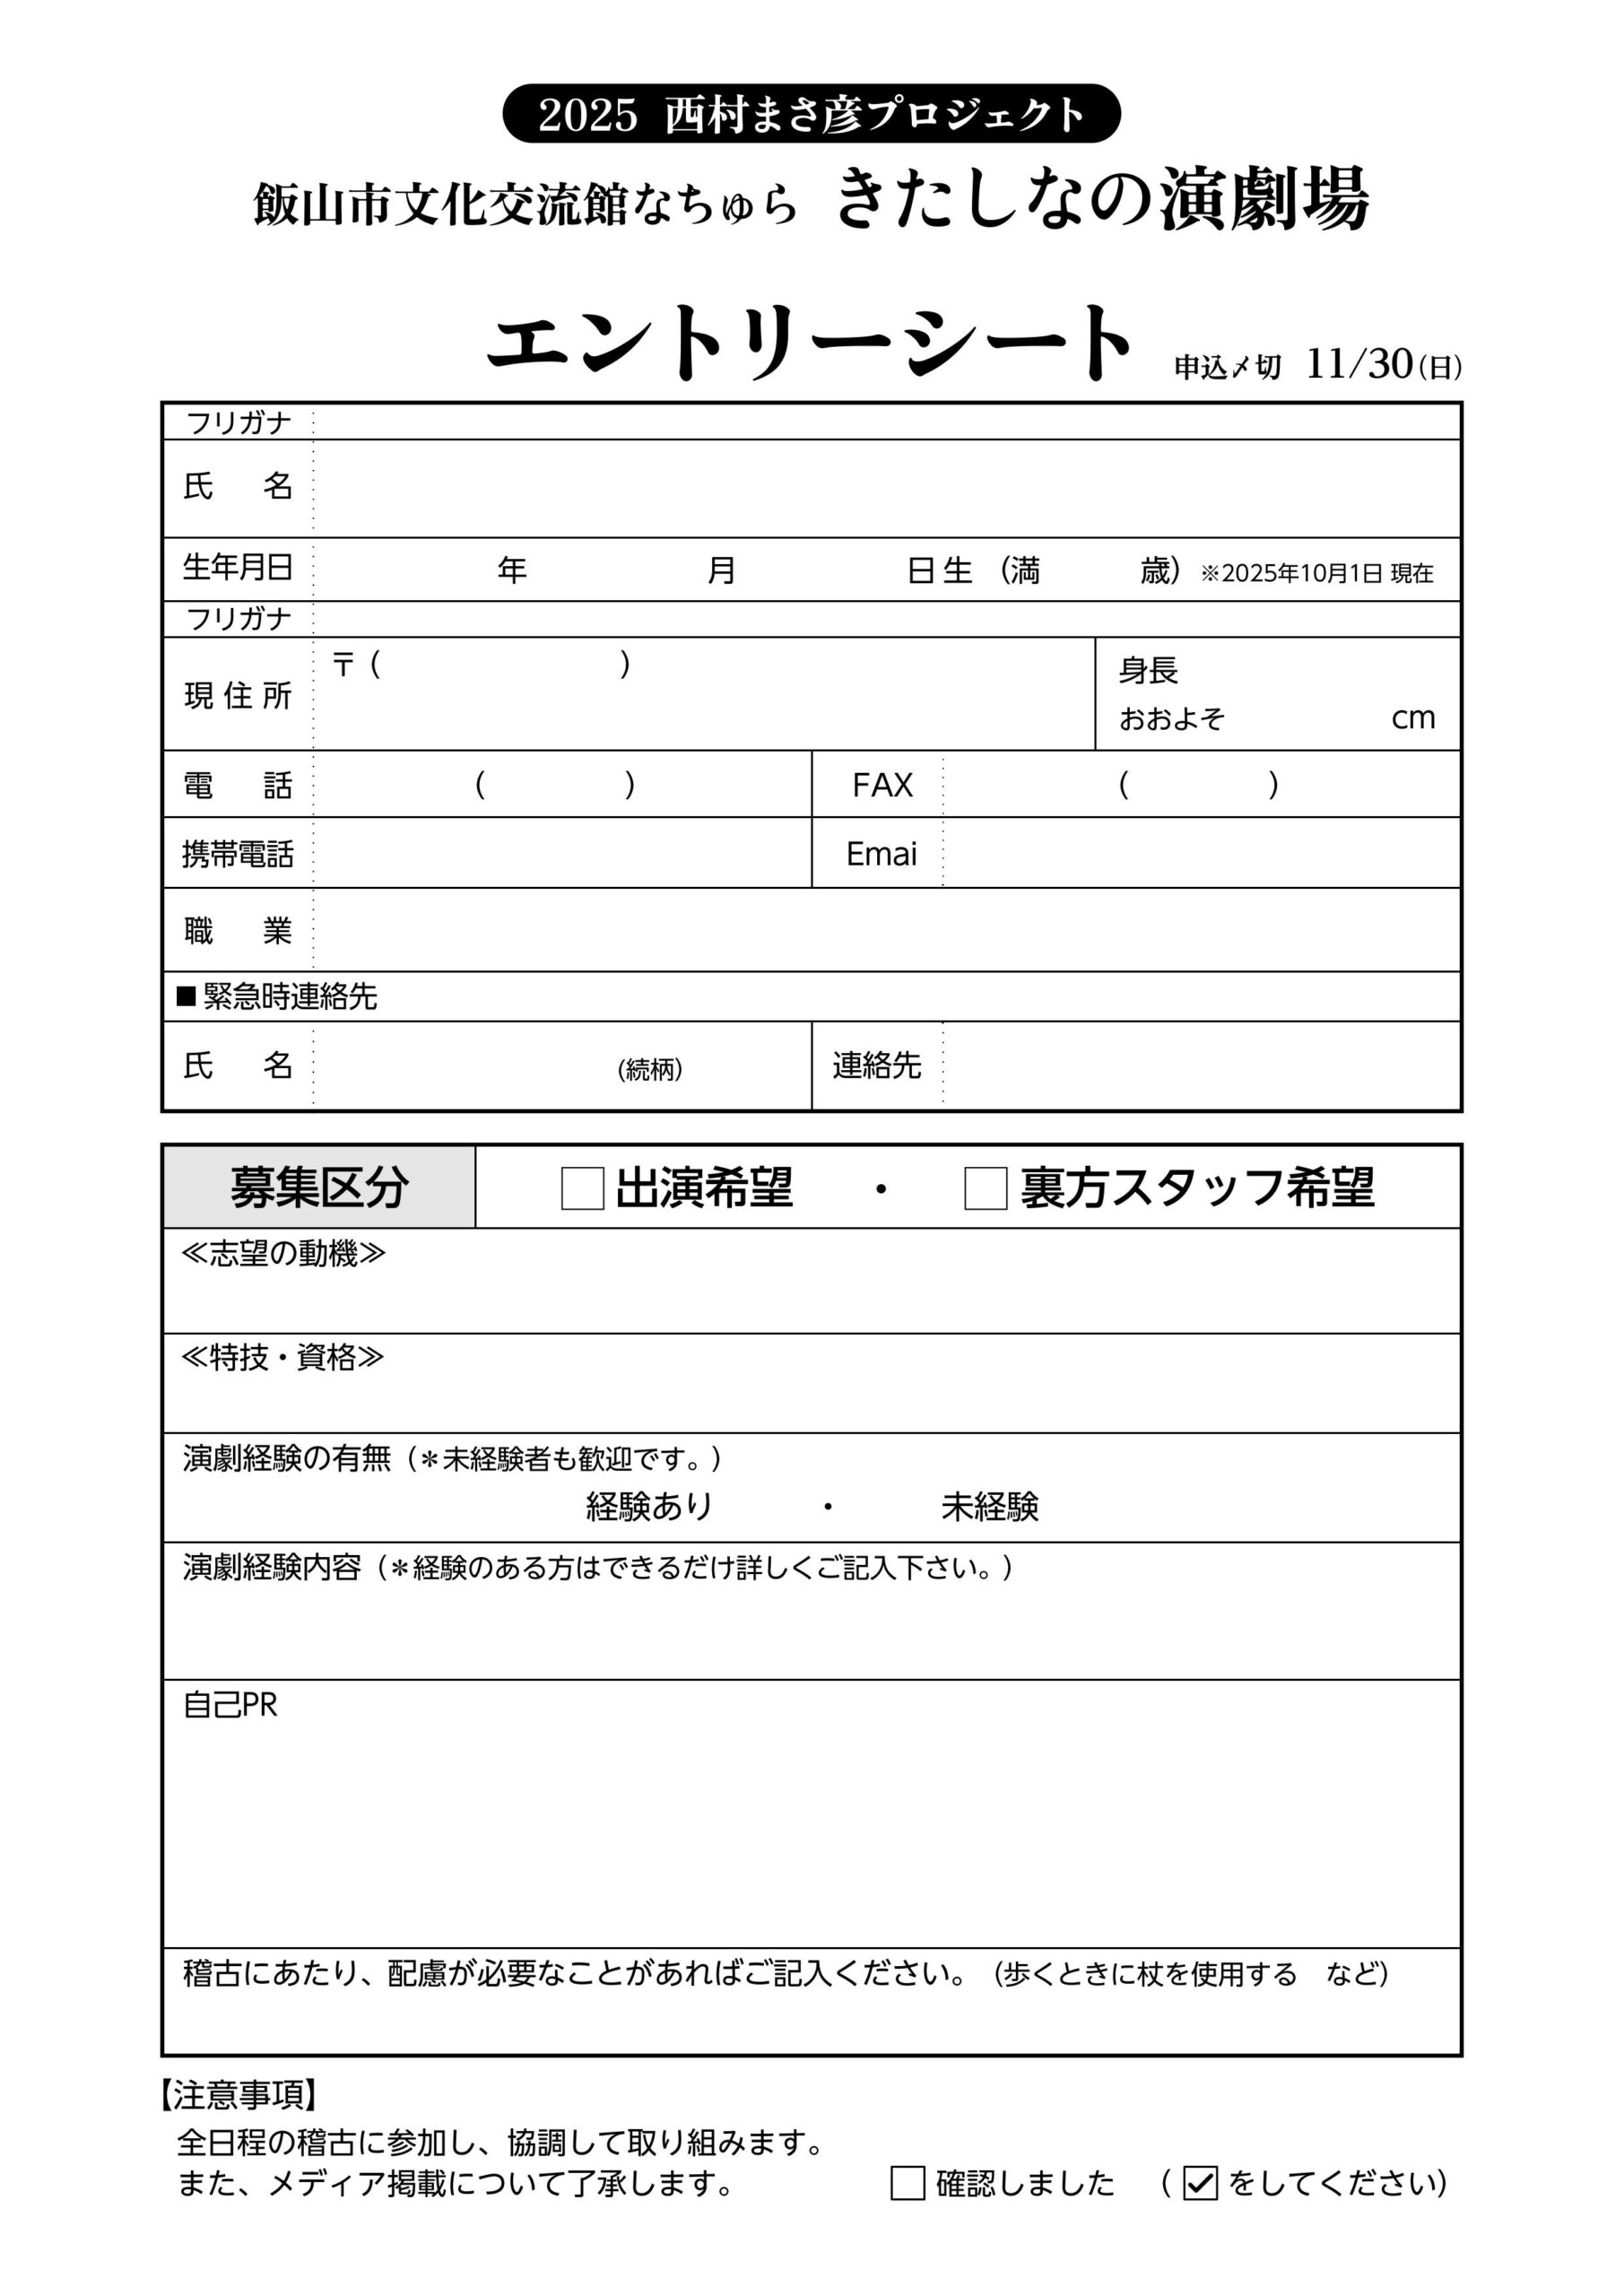 2025 西村まさ彦プロジェクト
飯山市文化交流館なちゅら きたしなの演劇場
エントリーシート 申込〆切 11/30(日)
フリガナ
氏 名
生年月日 年 月 日生 (満 歳) ※2025年10月1日 現在
フリガナ
現住所 〒( )
身長
おおよそ cm
電 話 ( ) FAX ( )
携帯電話 Emai
職 業
■緊急時連絡先
氏 名 (続柄) 連絡先
募集区分 □出演希望 ・ □裏方スタッフ希望
≪志望の動機≫
≪特技・資格≫
演劇経験の有無(＊未経験者も歓迎です。)
経験あり ・ 未経験
演劇経験内容(＊経験のある方はできるだけ詳しくご記入下さい。)
自己PR
稽古にあたり、配慮が必要なことがあればご記入ください。(歩くときに杖を使用する など)
【注意事項】
全日程の稽古に参加し、協調して取り組みます。
また、メディア掲載について了承します。 □確認しました (☑をしてください)